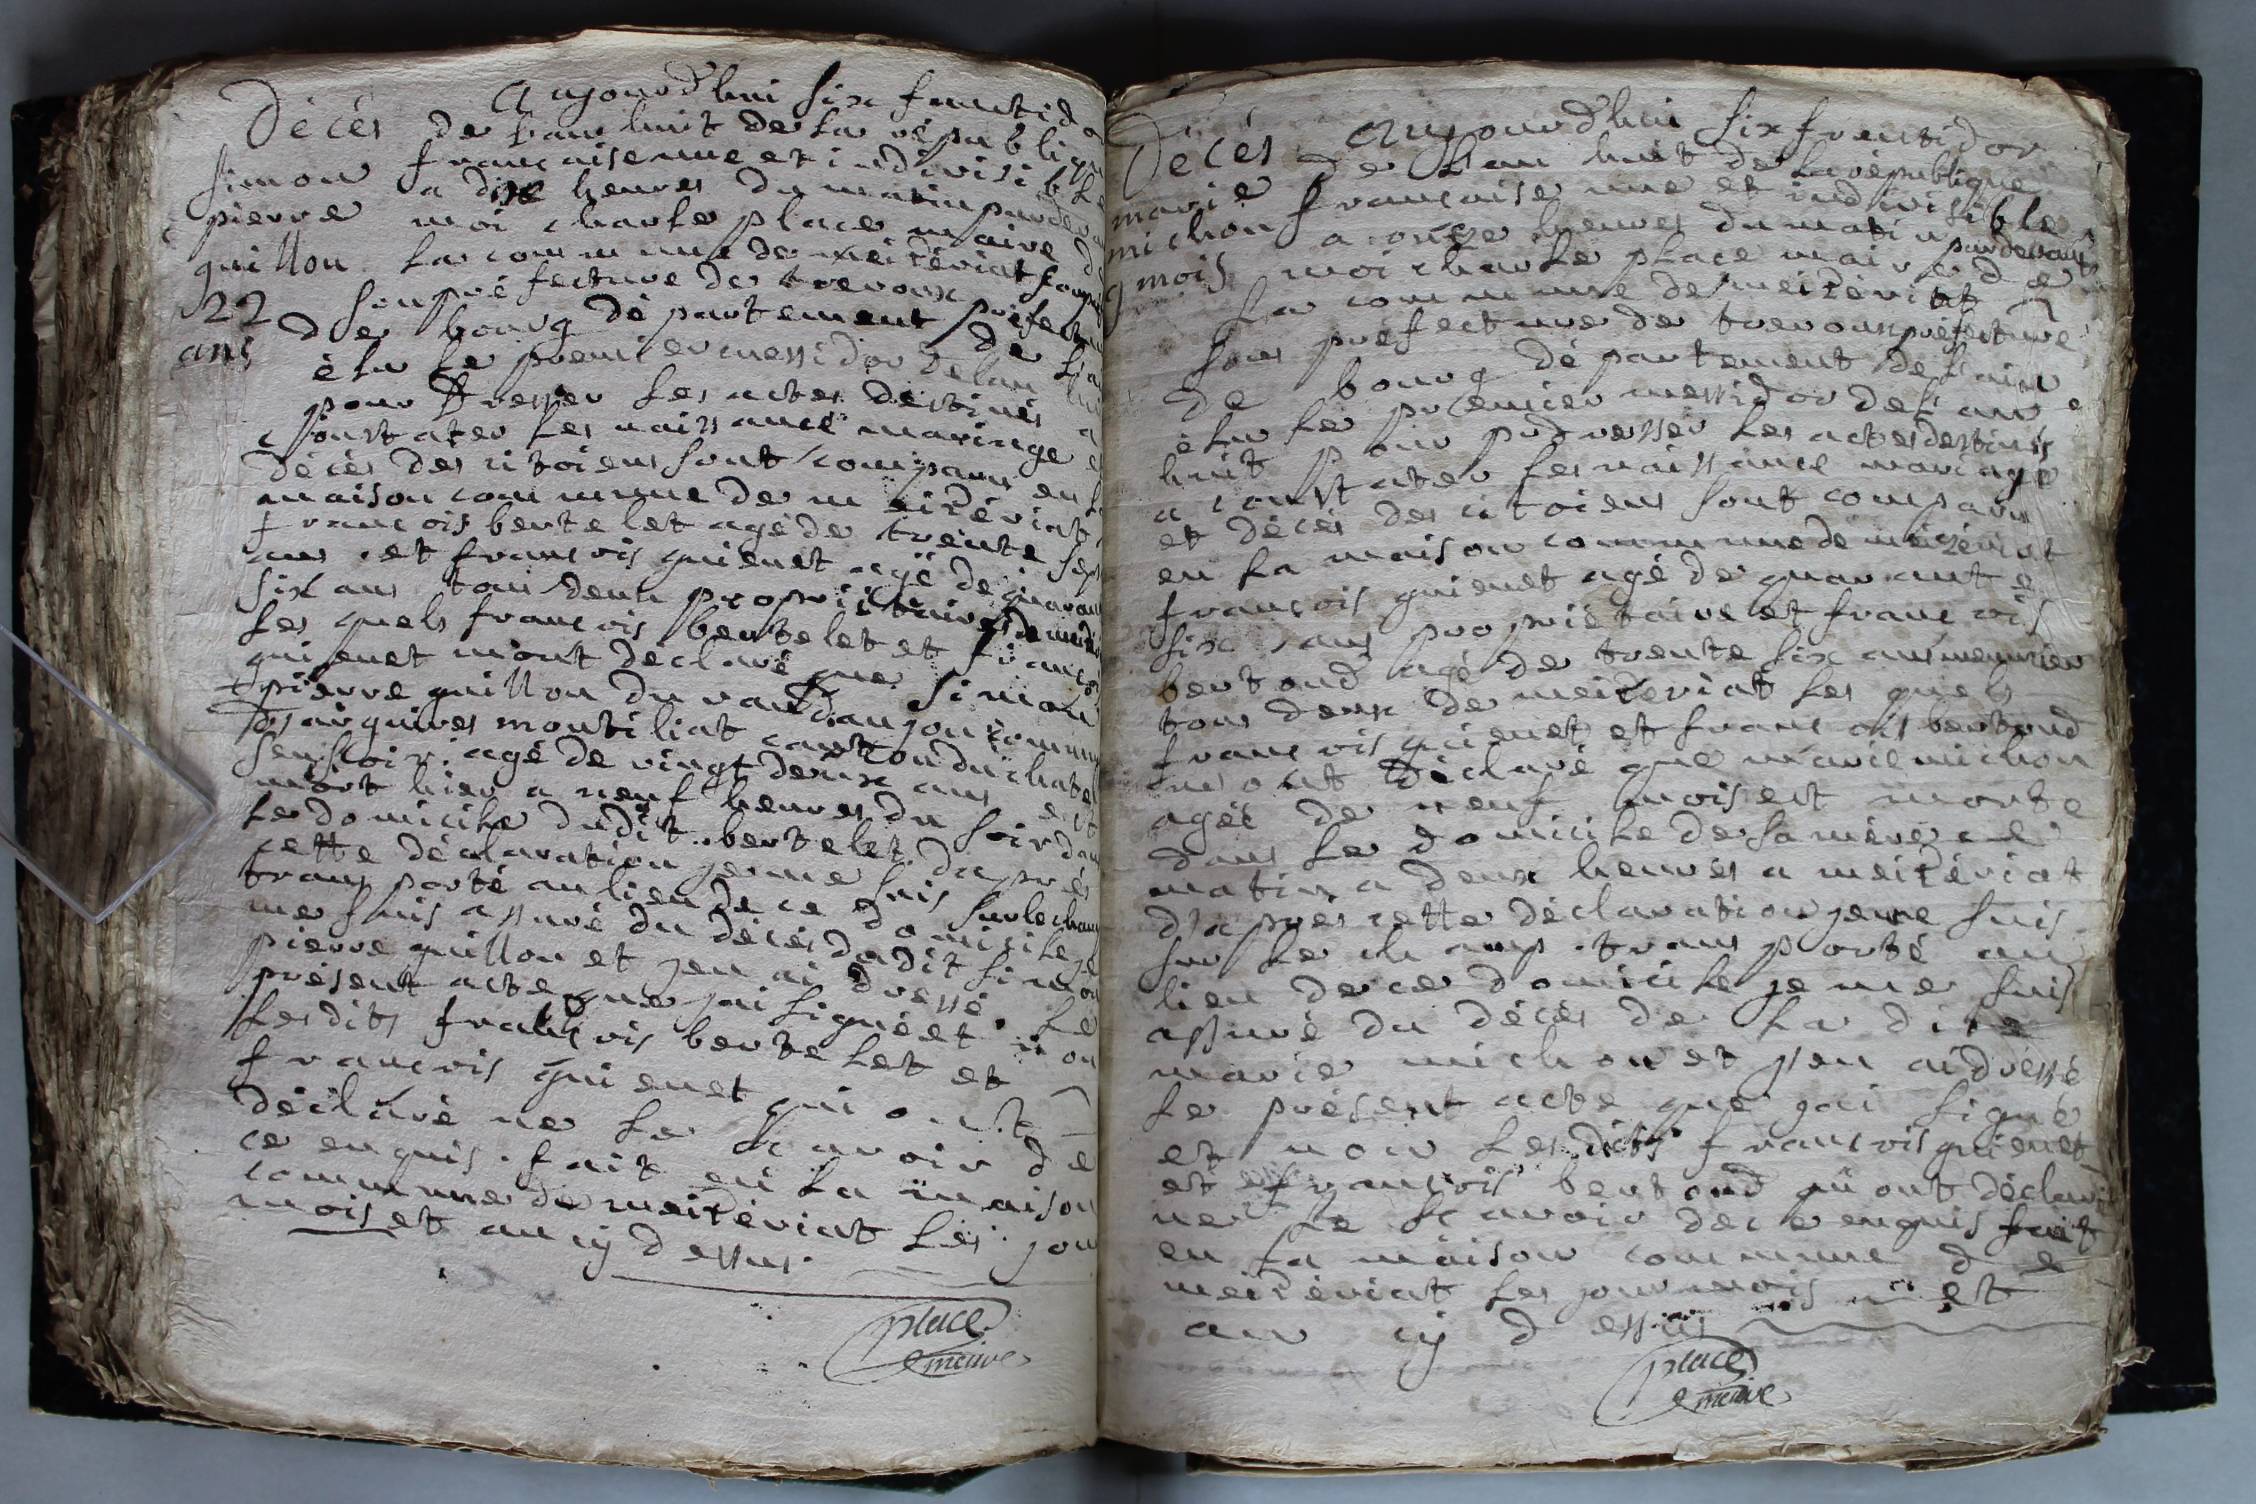 Décés
simon
pierre
guillon
22
ans
aujourd'hui six fructido
de l'an huit de la républiqu
française une et indivisible
a dix heures du matin pardeva
moi charle place maire d
la commune de meizériat
souspréfecture de trevoux préfectu
de bourg département de l'a
élu le premier messidor de l'an
pour dresser les actes destinés a
constater les naissance mariage e
décès des citoiens sont comparu en l
maison commune de meizériat
françois bertelet agé de trente sep
ans et françois guienet agé de quaran
six ans tous deux propriétaires de meizé
les quels françois bertelet et franco
guienet m'ont déclaré que simon
pierre guillon du
montiliat canton du chate
agé de vingt deux ans est
mort hier a neuf heures du soir dan
le domicile dudit bertelet d'aprés
cette déclaration je me suis sur le cham
transporté au lieu de ce domicile je
me suis assuré du décés dudit simon
pierre guillon et j'en ai dressé le
présent acte que j'ai signé et non
lesdits françois bertelet et
françois guienet qui ont
déclaré ne le scavoir de
ce enquis. fait en la maison
commune de meizériat les jou
mois et an cy dessus.
place
maire
Décés
marie
michon
9 mois
aujourd'hui six fructidor
de l'an huit de la république
française une et indivisible
a onze heures du matin pardevant
moi charle place maire de
la commune de meizériat
sous préfecture de trevoux préfecture
de bourg département de l'ain
élu le premier messidor de l'an
huit pour dresser les actes destinés
a constater les naissance mariage
et décés des citoiens sont comparu
en la maison commune de meizériat
françois guienet agé de quarante
six ans propriétaire et françois
bertoud agé de trente six ans meunier
tous deux de meizeriat les quels
françois guienet et françois bertoud
m'ont déclaré que marie michon
agée de neuf mois est morte
dans le domicile de sa mère ce
matin a deux heures a meizériat
d'apres cette déclaration je me suis
sur le champ transporté au
lieu de ce domicile je me suis
assuré du décés de la dite
marie michon et j'en ai dressé
le présent acte que j'ai signé
et non les dits françois guienet
et françois bertoud qui ont déclaré
ne le scavoir de ce enquis fait
en la maison commune de
meizériat les jour mois et
an cy dessus
place
maire